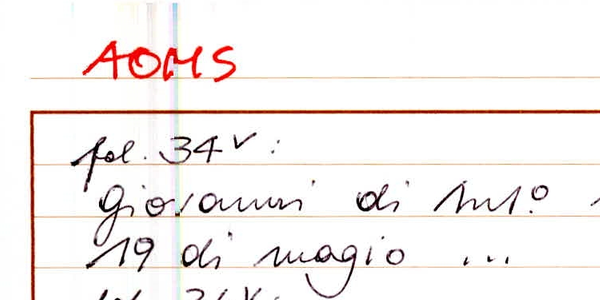 AOMS
fol. 34v:
giovanni di Ant.º
19 di magio ...